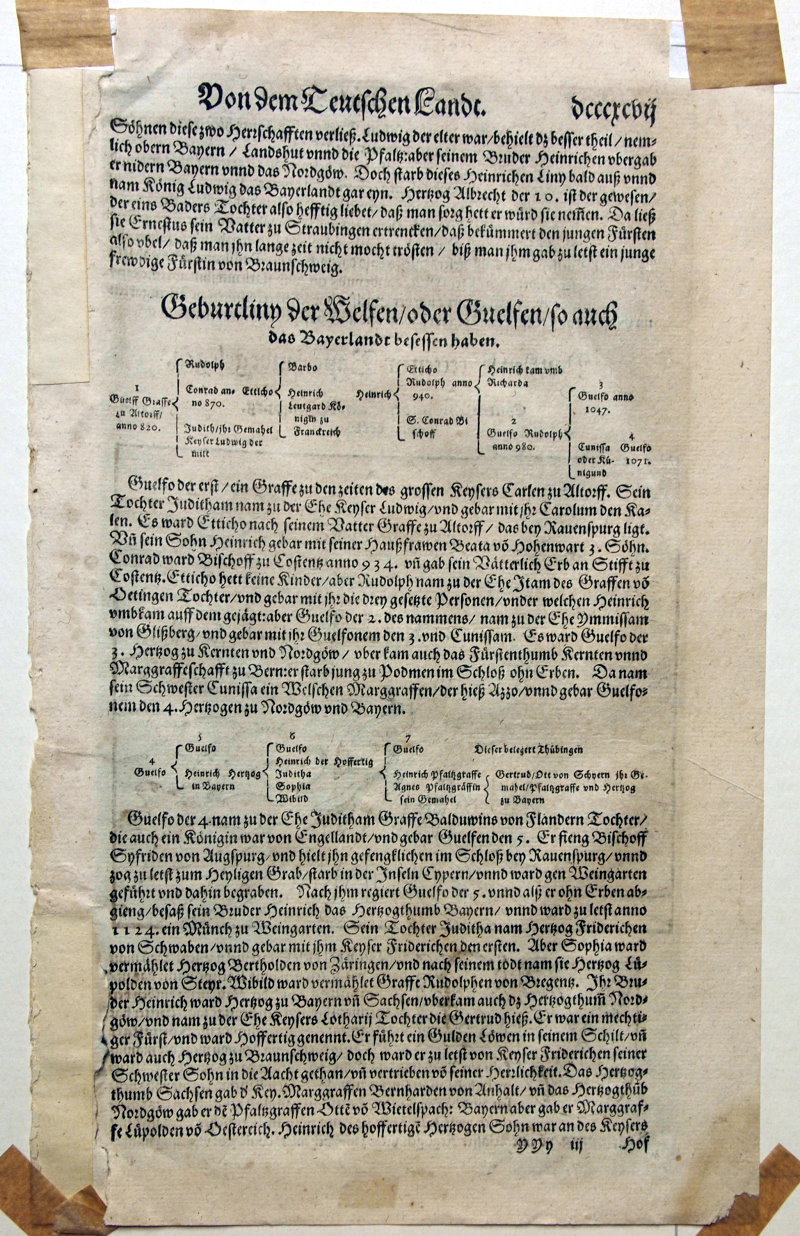 Von dem Teutschen Landt. dcccxcvij
Söhnen diese zwo Herrschafften verließ. Ludwig der elter war/behielt dz besser theil/nem-
lich obern Bayern / Landshut vnnd die Pfaltz:aber seinem Bruder Heinrichen vbergab
er nidern Bayern vnnd das Nordgöw. Doch starb dieses Heinrichen Liny bald auß vnnd
nam König Ludwig das Bayerlandt gar eyn. Hertzog Albrecht der 10. ist der gewesen/
der eins Baders Tochter also hefftig liebet/ daß man sorg hett er würd sie nem̃en. Da ließ
sie Ernestus sein Vatter zu Straubingen ertrencken/ daß bekümmert den jungen Fürsten
also vbel/ daß man jhn lange zeit nicht mocht trösten / biß man jhm gab zu letst ein junge
frewdige Fürstin von Braunschweig.
Geburtliny der Welfen/oder Guelfen/so auch
das Bayerlandt besessen haben.
1
Guelff Graffe
zu Altorff/
anno 820.
Rudolph
Conrad an-
no 870.
Judith/jhr Gemahel
Keyser Ludwig der
milt
Etticho
Warbo
Heinrich
Leutgard Kö-
nigin zu
Franckreich
Heinrich
Etticho
Rudolph anno
940.
S. Conrad Bi
schoff
Heinrich kam vmb
Richarda
2
Guelfo Rudolph
anno 980.
3
Guelfo anno
1047.
Cunissa
oder Kü-
nigund
4
Guelfo
1071.
Guelfo der erst/ein Graffe zu den zeiten des grossen Keysers Carlen zu Altorff. Sein
Tochter Juditham nam zu der Ehe Keyser Ludwig/vnd gebar mit jhr Carolum den Ka-
len. Es ward Etticho nach seinem Vatter Graffe zu Altorff/das bey Rauenspurg ligt.
Vñ sein Sohn Heinrich gebar mit seiner Haußfrawen Beata võ Hohenwart 3. Söhn.
Conrad ward Bischoff zu Costentz anno 934. vñ gab sein Vätterlich Erb an Stifft zu
Costentz. Etticho hett keine Kinder/aber Rudolph nam zu der Ehe Jtam des Graffen võ
Oetingen Tochter/vnd gebar mit jhr die drey gesetzte Personen/vnder welchen Heinrich
vmbkam auff dem gejägt:aber Guelfo der 2. des nammens/ nam zu der Ehe Ymmissam
von Glißberg/vnd gebar mit jhr Guelfonem den 3. vnd Cunissam. Es ward Guelfo der
3. Hertzog zu Kernten vnnd Nordgöw/ vberkam auch das Fürstenthumb Kernten vnnd
Marggraffeschafft zu Bern:er starb jung zu Podmen im Schloß ohn Erben. Da nam
sein Schwester Cunissa ein Welschen Marggraffen/der hieß Azzo/vnnd gebar Guelfo-
nem den 4. Hertzogen zu Nordgöw vnd Bayern.
4
Guelfo
5
Guelfo
Heinrich Hertzog
in Bayern
6
Guelfo
Heinrich der Hoffertig
Juditha
Sophia
Wibild
7
Guelfo
Heinrich Pfaltzgraffe
Agnes Pfaltzgräffin
sein Gemahel
Dieser belegert Thübingen
Gertrud/Ott von Schyern jhr Ge-
mahel/Pfaltzgraffe vnd Hertzog
zu Bayern
Guelfo der 4. nam zu der Ehe Juditham Graffe Balduwins von Flandern Tochter/
die auch ein Königin war von Engellandt/vnd gebar Guelfen den 5. Er fieng Bischoff
Syfriden von Augspurg/vnd hielt jhn gefengklichen im Schloß bey Rauenspurg/vnnd
zog zu letst zum Heyligen Grab/starb in der Inseln Cypern/vnnd ward gen Weingarten
geführt vnd dahin begraben. Nach jhm regiert Guelfo der 5. vnnd alß er ohn Erben ab-
gieng/besaß sein Bruder Heinrich das Hertzogthumb Bayern/ vnnd ward zu letst anno
1124. ein Münch zu Weingarten. Sein Tochter Juditha nam Hertzog Friderichen
von Schwaben/vnnd gebar mit jhm Keyser Friderichen den ersten. Aber Sophia ward
vermählet Hertzog Bertholden von Zäringen/vnd nach seinem todt nam sie Hertzog Lü-
polden von Steyr. Wibild ward vermählet Graffe Rudolphen von Bregentz. Jhr Bru-
der Heinrich ward Hertzog zu Bayern vñ Sachsen/vberkam auch dz Hertzogthum̃ Nord-
göw/vnd nam zu der Ehe Keysers Lotharij Tochter die Gertrud hieß. Er war ein mechti-
ger Fürst/vnd ward Hoffertig genennt. Er führt ein Gulden Löwen in seinem Schilt/vñ
ward auch Hertzog zu Braunschweig/ doch ward er zu letst von Keyser Friderichen seiner
Schwester Sohn in die Aacht gethan/vñ vertrieben võ seiner Herrlichkeit. Das Hertzog-
thumb Sachsen gab d' Key. Marggraffen Bernharden von Anhalt/ vñ das Hertzogthũb
Nordgöw gab er dẽ Pfaltzgraffen Ottẽ võ Wietelspach: Bayern aber gab er Marggraf-
fe Lüpolden võ Oestereich. Heinrich des hoffertigẽ Hertzogen Sohn war an des Keysers
YYy iij Hof